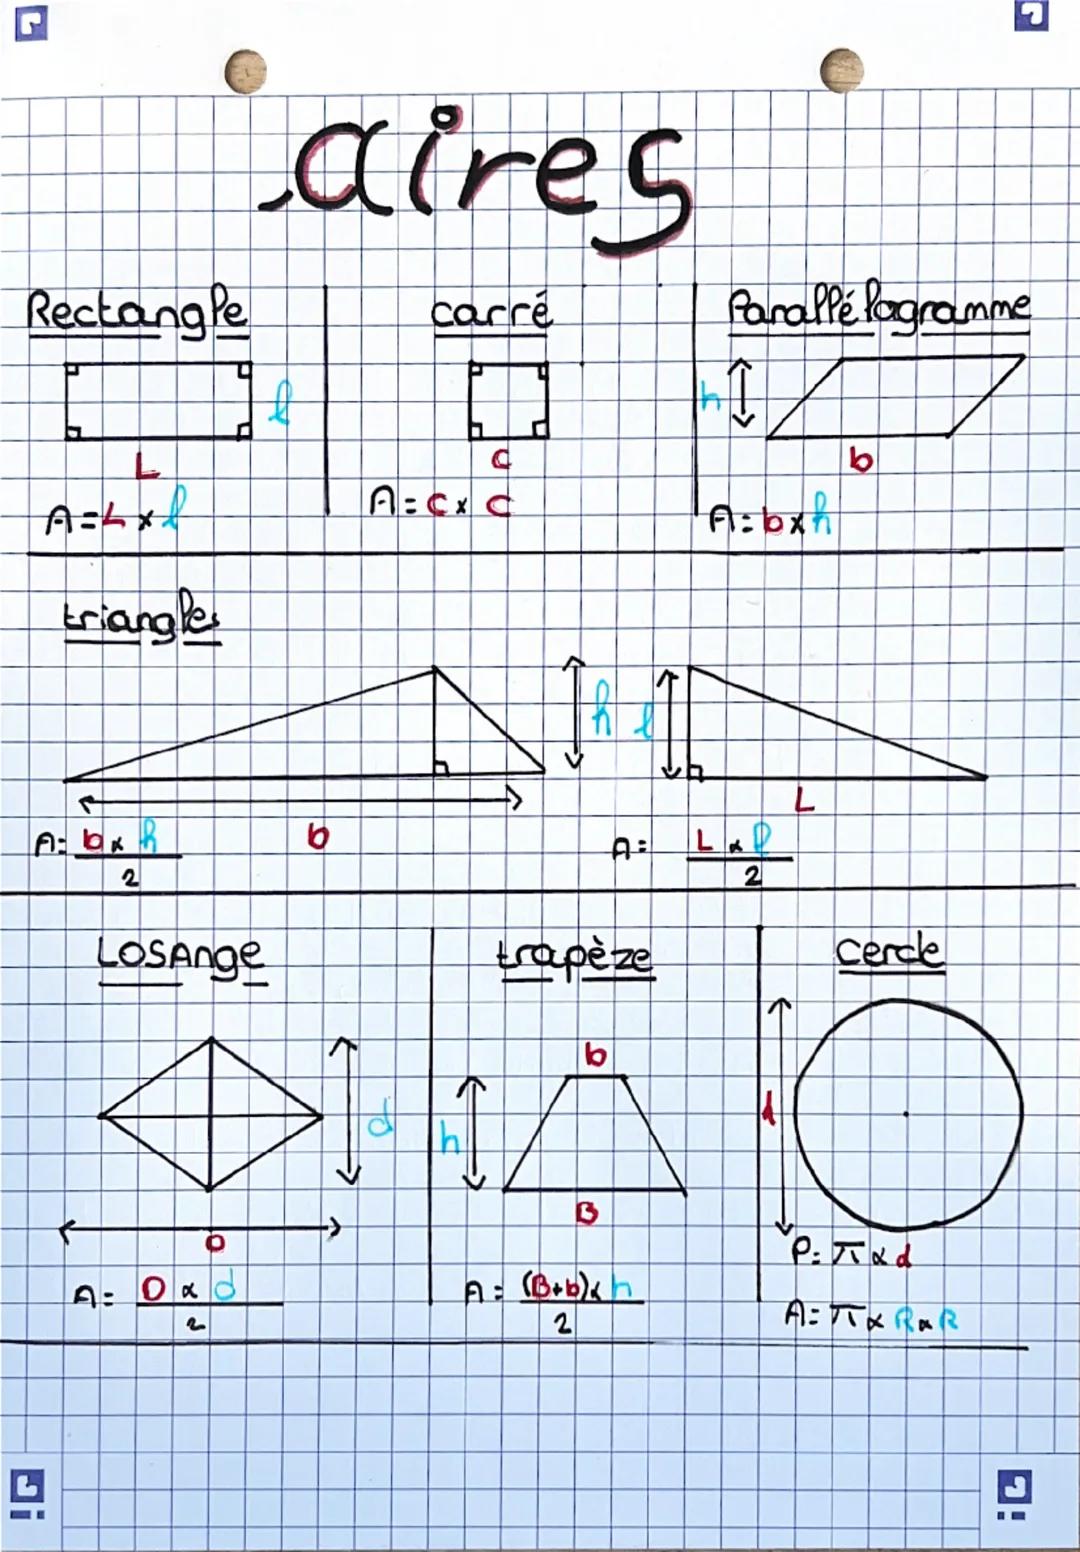 aires
Rectangle
l
L
A = L x l
carré
c
A = c x c
Parallélogramme
h
b
A = b x h
triangles
h
b
A = b x h
2
l
L
A = L x l
2
LOSAnge
d
D
A = D x d
2
trapèze
b
h
B
A = (B+b) x h
2
cercle
d
P = π x d
A = π x R x R